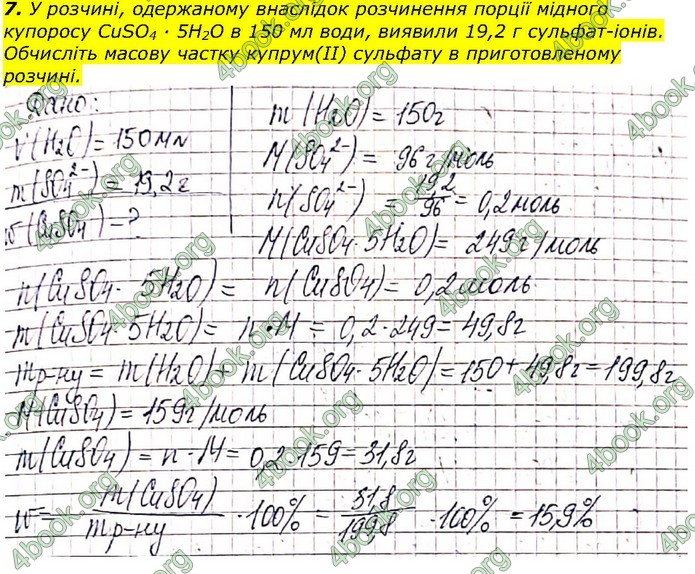 7. У розчині, одержаному внаслідок розчинення порції мідного
купоросу CuSO₄ · 5H₂O в 150 мл води, виявили 19,2 г сульфат-іонів.
Обчисліть масову частку купрум(II) сульфату в приготовленому
розчині.
Дано:
V(H₂O) = 150 мл
m(SO₄²⁻) = 19,2 г
w(CuSO₄) – ?
m(H₂O) = 150г
M(SO₄²⁻) = 96 г/моль
n(SO₄²⁻) = 19,2/96 = 0,2 моль
M(CuSO₄·5H₂O) = 249 г/моль
n(CuSO₄·5H₂O) = n(CuSO₄) = 0,2 моль
m(CuSO₄·5H₂O) = n·M = 0,2·249 = 49,8г
mр-ну = m(H₂O) + m(CuSO₄·5H₂O) = 150 + 49,8г = 199,8г
M(CuSO₄) = 159г/моль
m(CuSO₄) = n·M = 0,2·159 = 31,8г
w = m(CuSO₄)/mр-ну · 100% = 31,8/199,8 · 100% = 15,9%
4book.org